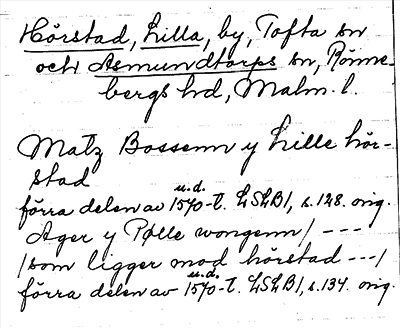 Hörstad, Lilla, by, Tofta sn
och Asmundtorps sn, Rönne-
bergs hd, Malm. l.
Matz Bossenn y Lille hör-
stad
förra delen av u.d. 1570-t. LSLB1, s. 128. orig.
Ager y Pølle wongenn / ---
/ som ligger mod hörstad --- /
förra delen av u.d. 1570-t. LSLB1, s. 134. orig.